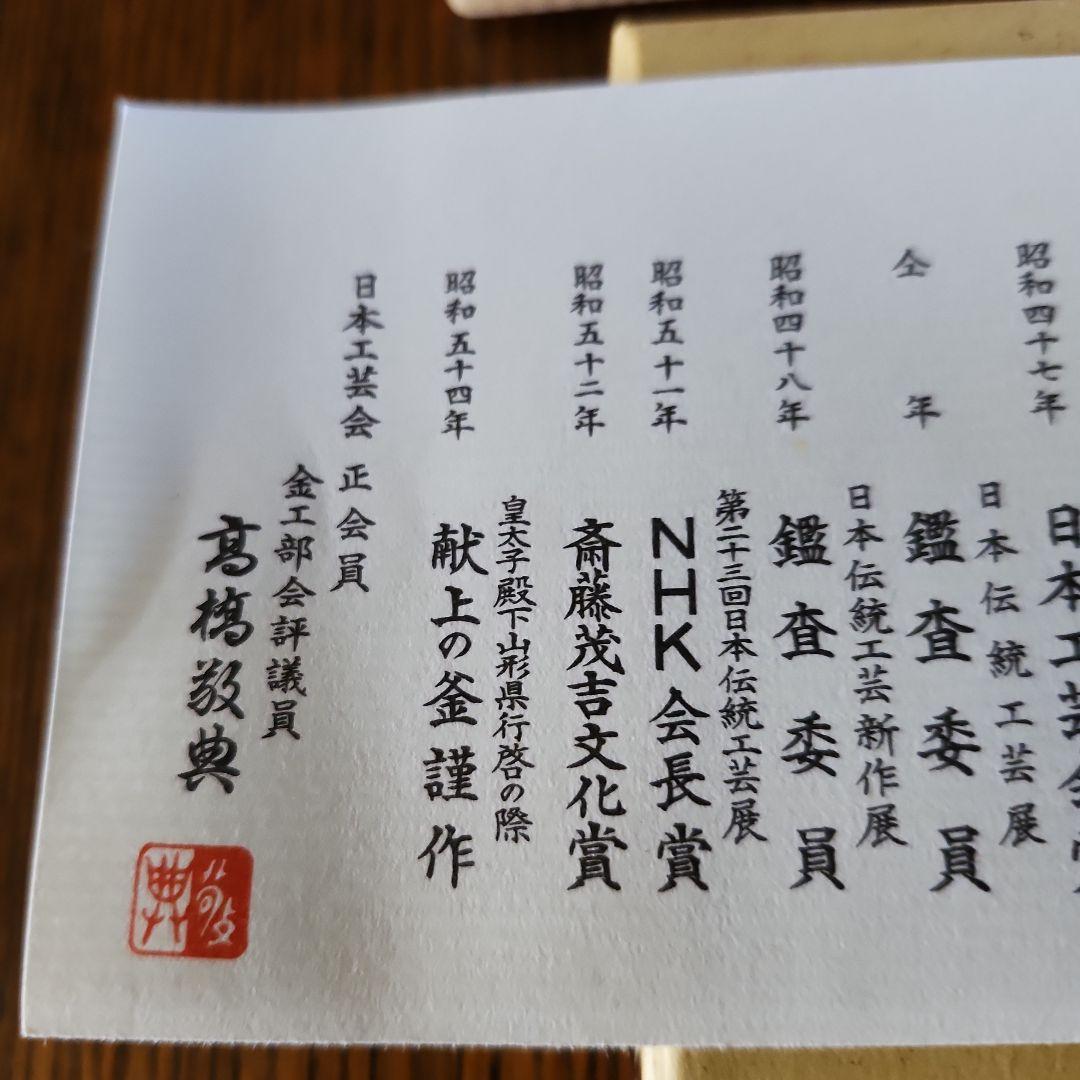 昭和四十七年
日本工芸会
仝年
日本伝統工芸展
鑑査委員
日本伝統工芸新作展
鑑査委員
昭和四十八年
第二十三回日本伝統工芸展
NHK会長賞
昭和五十一年
斎藤茂吉文化賞
昭和五十二年
皇太子殿下山形県行啓の際
献上の釜謹作
昭和五十四年
日本工芸会正会員
金工部会評議員
高橋敬典
敬典